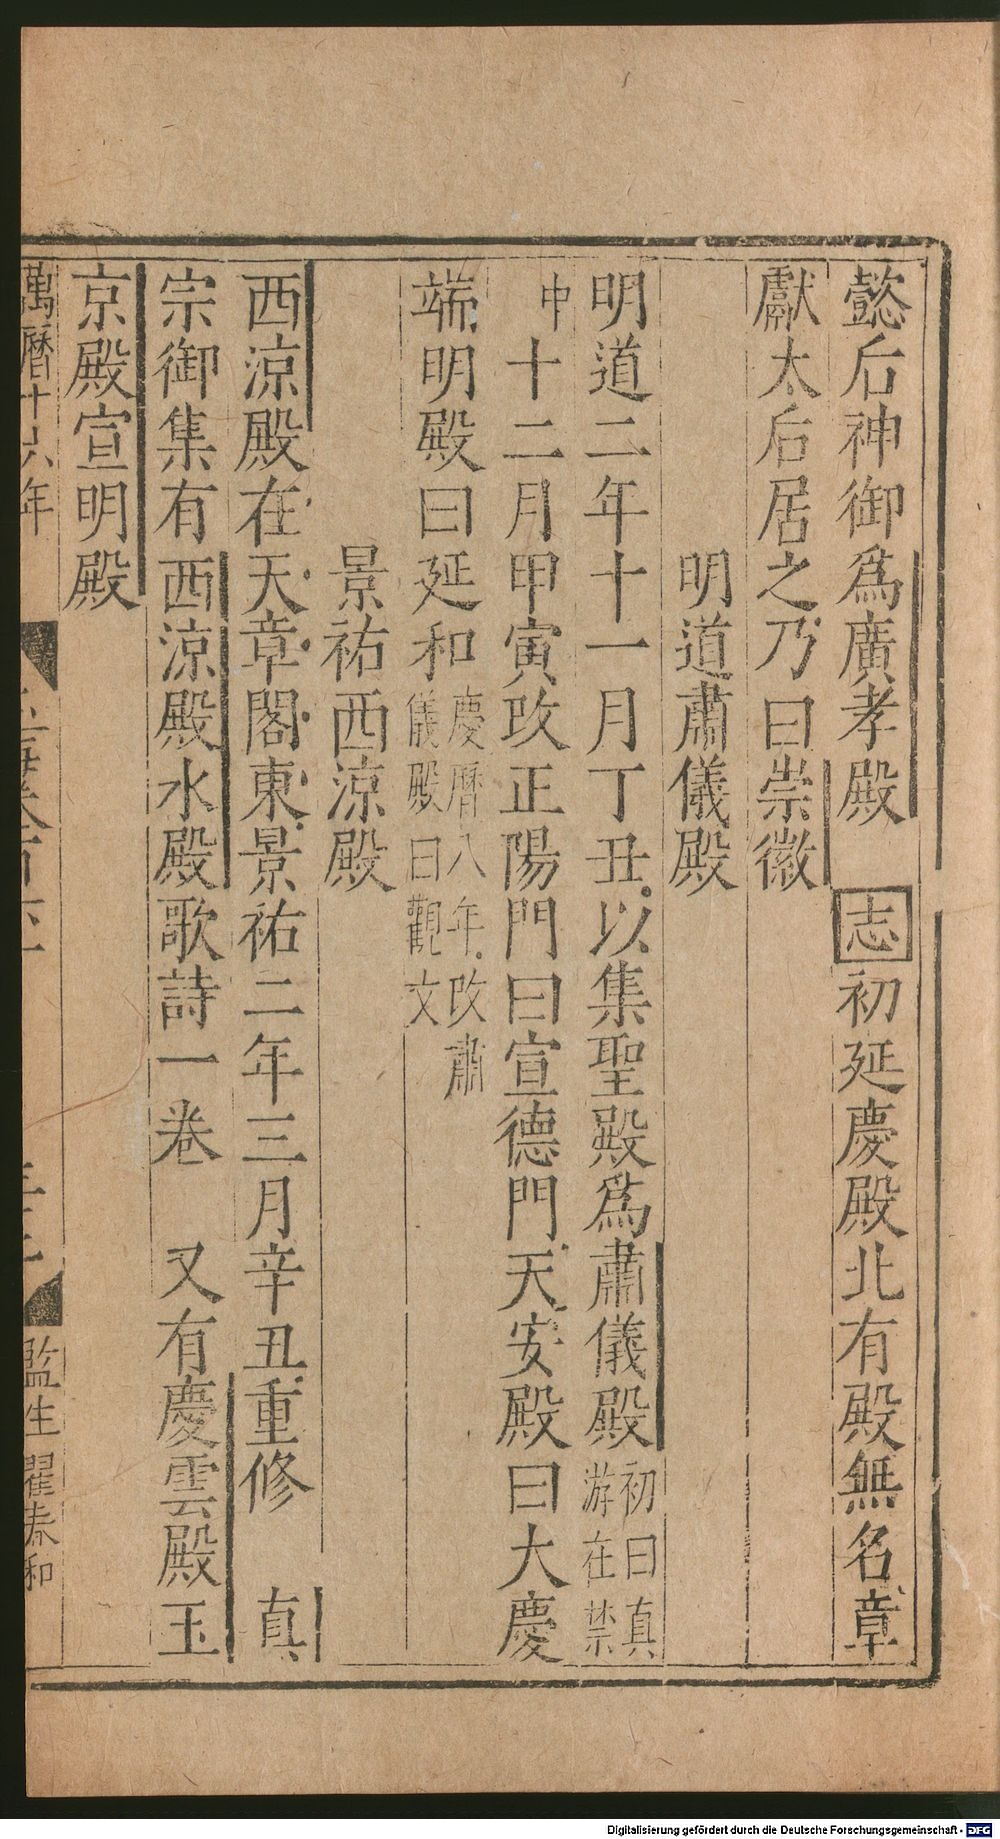 懿后神御爲廣孝殿　志初延慶殿北有殿無名章
獻太后居之乃曰崇徽
明道肅儀殿
明道二年十一月丁丑以集聖殿爲肅儀殿初曰真
游在禁
中
十二月甲寅改正陽門曰宣德門天安殿曰大慶
端明殿曰延和慶曆八年改肅
儀殿曰觀文
景祐西涼殿
西涼殿在天章閣東景祐二年三月辛丑重修　真
宗御集有西涼殿水殿歌詩一卷　又有慶雲殿玉
京殿宣明殿
萬曆十六年
監生翟泰和
Digitalisierung gefördert durch die Deutsche Forschungsgemeinschaft - DFG